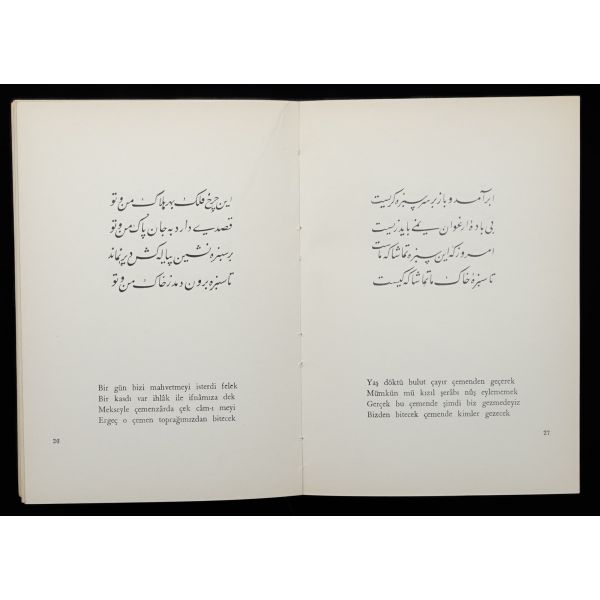 این چرخ فلک بهر هلاک من و تو
قصدی دارد به جان پاک من و تو
بر سبزه نشین پیاله کش دیر نماند
تا سبزه برون دمد ز خاک من و تو
Bir gün bizi mahvetmeyi isterdi felek
Bir kasdı var ihlâk ile ifnâmıza dek
Mekseyle çemenzârda çek câm-ı meyi
Ergeç o çemen toprağımızdan bitecek
26
ابر آمد و باز بر سر سبزه گریست
بی بادهٔ ارغوان نمی باید زیست
امروز که این سبزه تماشاگه ماست
تا سبزهٔ خاک ما تماشاگه کیست
Yaş döktü bulut çayır çemenden geçerek
Mümkün mü kızıl şerâbı nûş eylememek
Gerçek bu çemende şimdi biz gezmedeyiz
Bizden bitecek çemende kimler gezecek
27